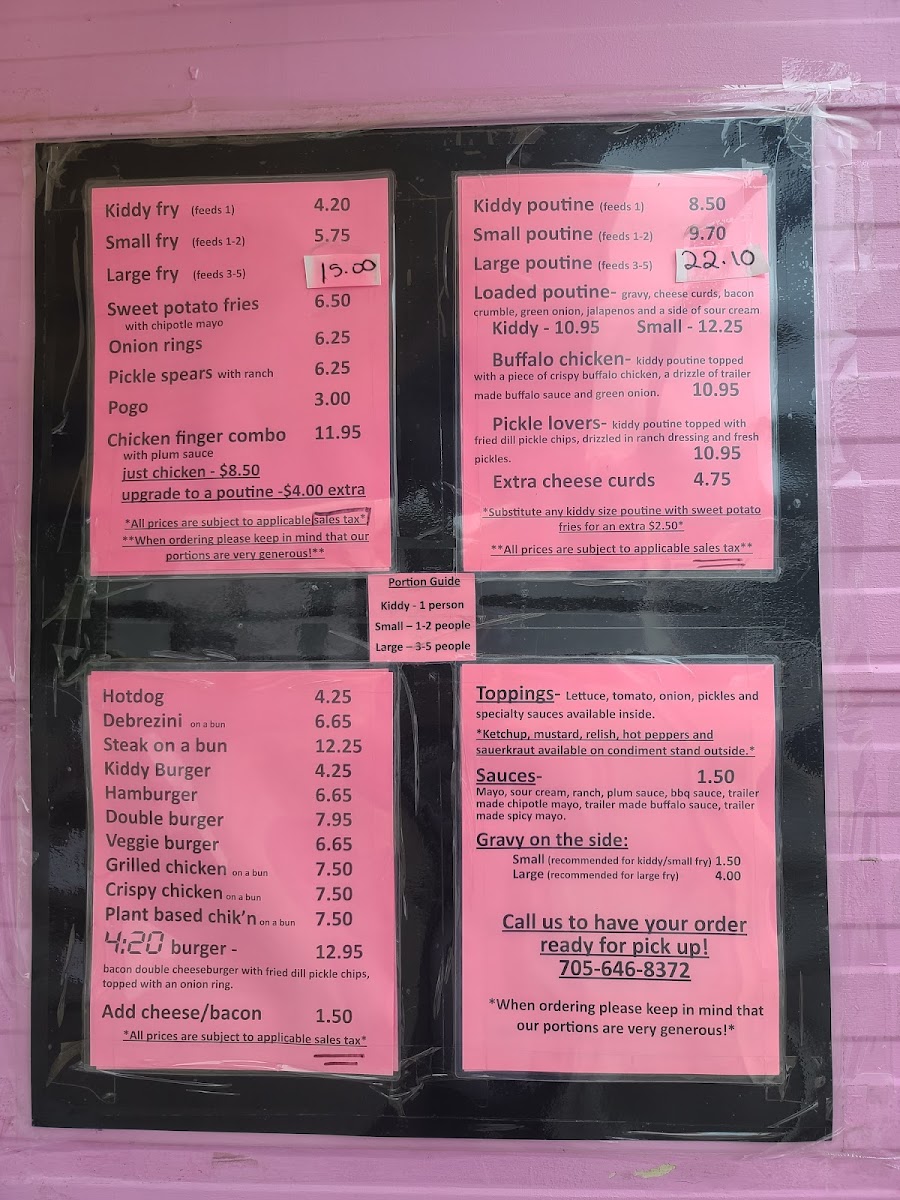 Kiddy fry (feeds 1) 4.20
Small fry (feeds 1-2) 5.75
Large fry (feeds 3-5) 15.00
Sweet potato fries 6.50
with chipotle mayo
Onion rings 6.25
Pickle spears with ranch 6.25
Pogo 3.00
Chicken finger combo 11.95
with plum sauce
just chicken - $8.50
upgrade to a poutine -$4.00 extra
*All prices are subject to applicable sales tax*
**When ordering please keep in mind that our
portions are very generous!**
Kiddy poutine (feeds 1) 8.50
Small poutine (feeds 1-2) 9.70
Large poutine (feeds 3-5) 22.10
Loaded poutine- gravy, cheese curds, bacon
crumble, green onion, jalapenos and a side of sour cream
Kiddy - 10.95 Small - 12.25
Buffalo chicken- kiddy poutine topped
with a piece of crispy buffalo chicken, a drizzle of trailer
made buffalo sauce and green onion. 10.95
Pickle lovers- kiddy poutine topped with
fried dill pickle chips, drizzled in ranch dressing and fresh
pickles. 10.95
Extra cheese curds 4.75
*Substitute any kiddy size poutine with sweet potato
fries for an extra $2.50*
**All prices are subject to applicable sales tax**
Portion Guide
Kiddy - 1 person
Small – 1-2 people
Large – 3-5 people
Hotdog 4.25
Debrezini on a bun 6.65
Steak on a bun 12.25
Kiddy Burger 4.25
Hamburger 6.65
Double burger 7.95
Veggie burger 6.65
Grilled chicken on a bun 7.50
Crispy chicken on a bun 7.50
Plant based chik'n on a bun 7.50
4:20 burger - 12.95
bacon double cheeseburger with fried dill pickle chips,
topped with an onion ring.
Add cheese/bacon 1.50
*All prices are subject to applicable sales tax*
Toppings- Lettuce, tomato, onion, pickles and
specialty sauces available inside.
*Ketchup, mustard, relish, hot peppers and
sauerkraut available on condiment stand outside.*
Sauces- 1.50
Mayo, sour cream, ranch, plum sauce, bbq sauce, trailer
made chipotle mayo, trailer made buffalo sauce, trailer
made spicy mayo.
Gravy on the side:
Small (recommended for kiddy/small fry) 1.50
Large (recommended for large fry) 4.00
Call us to have your order
ready for pick up!
705-646-8372
*When ordering please keep in mind that
our portions are very generous!*